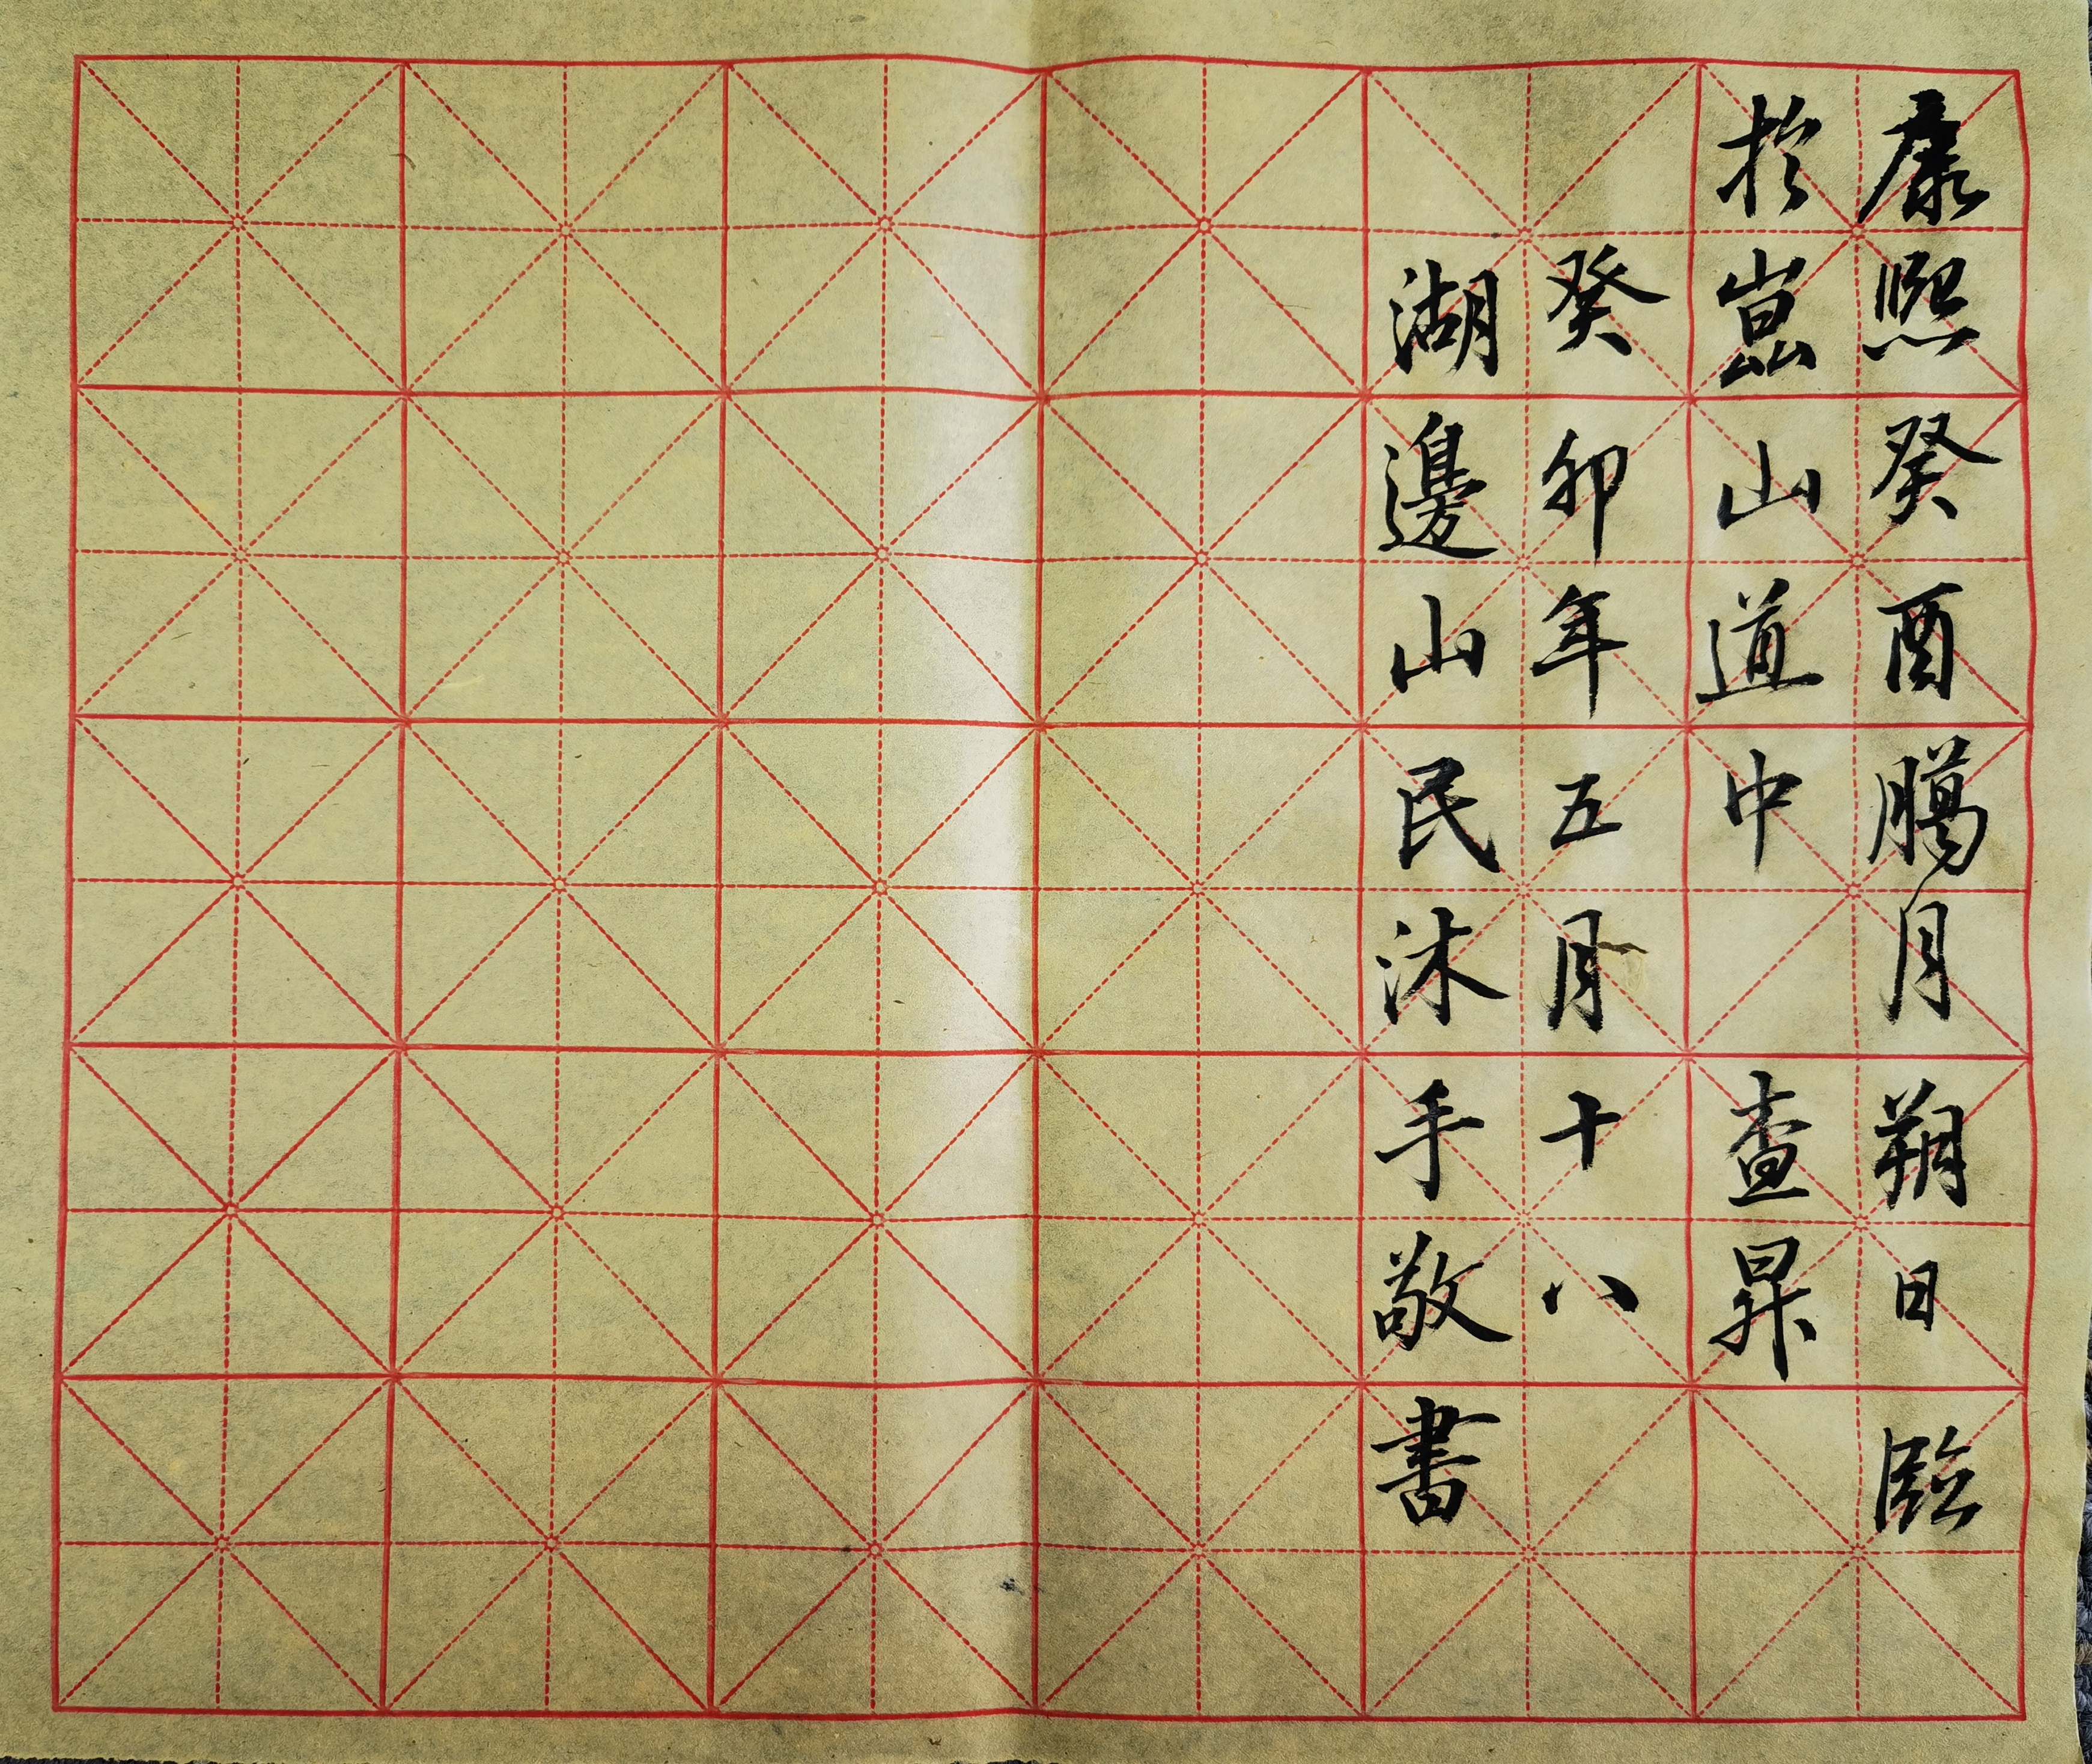 康熙癸酉臈月朔日臨
於崑山道中 查昇
癸卯年五月十八
湖邊山民沐手敬書